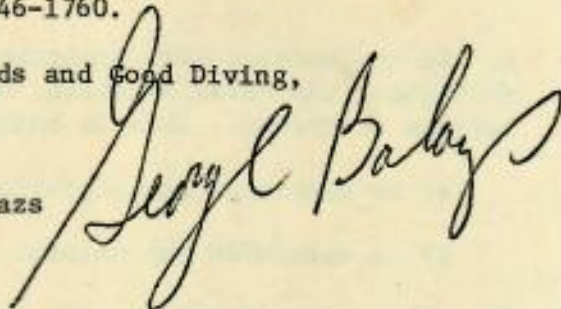 46-1760.
ds and Good Diving,
George Balazs
azs